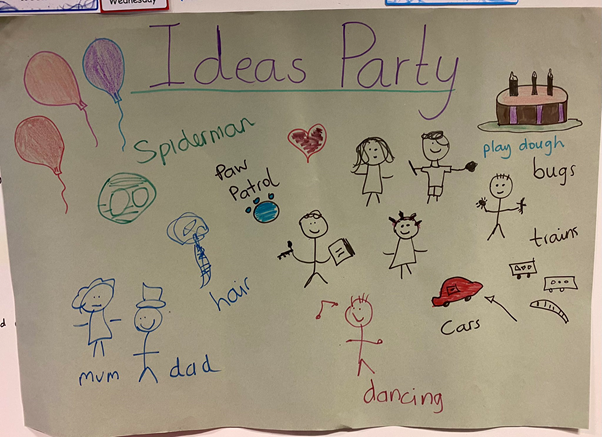 Wednesday
Ideas Party
Spiderman
Paw
Patrol
play dough
bugs
trains
hair
cars
mum
dad
dancing